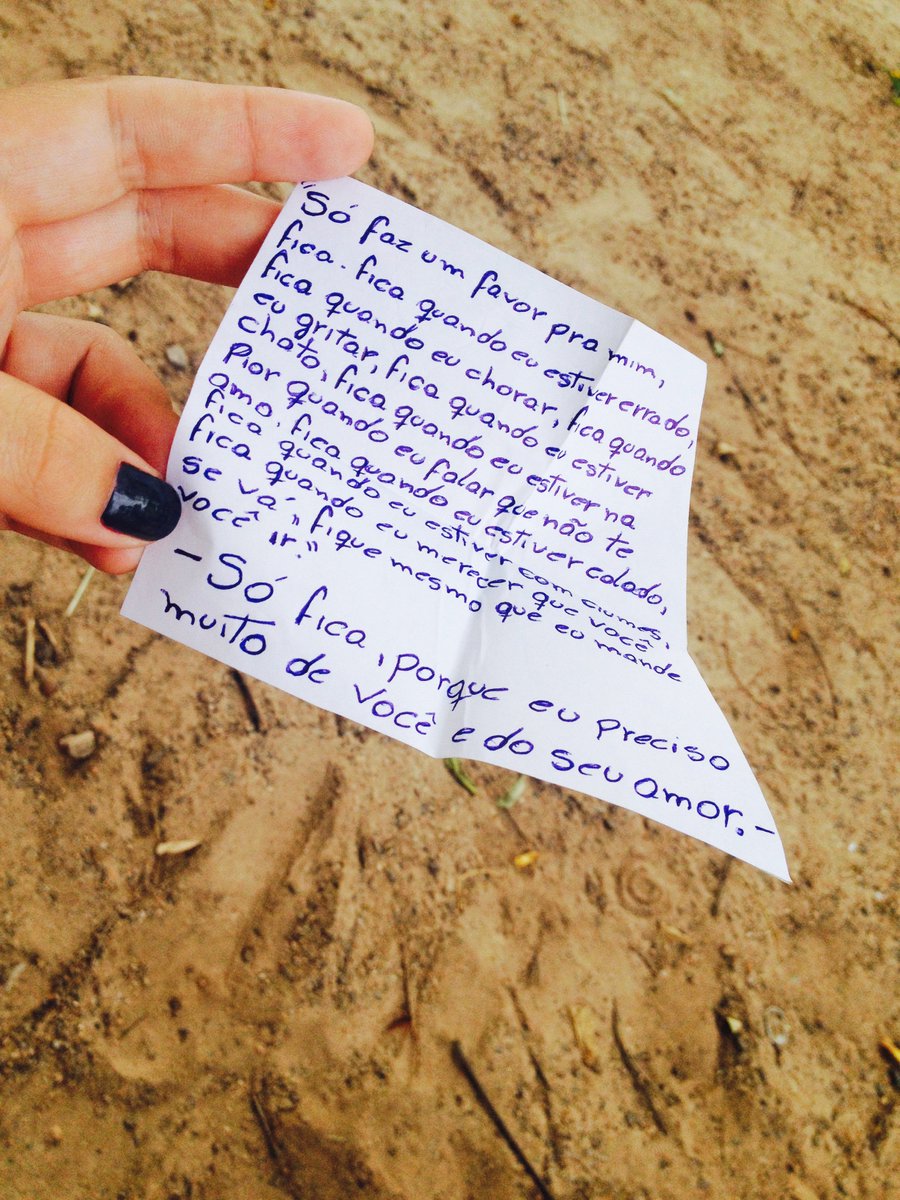 "Só faz um favor pra mim,
fica. fica quando eu estiver errado,
fica quando eu chorar, fica quando
eu gritar, fica quando eu estiver
chato, fica quando eu estiver na
pior quando eu falar que não te
amo, fica quando eu estiver calado,
fica quando eu estiver com ciumes,
fica quando eu merecer que você
se vá, fique mesmo que eu mande
você ir."
- Só fica, porque eu preciso
muito de você e do seu amor. -